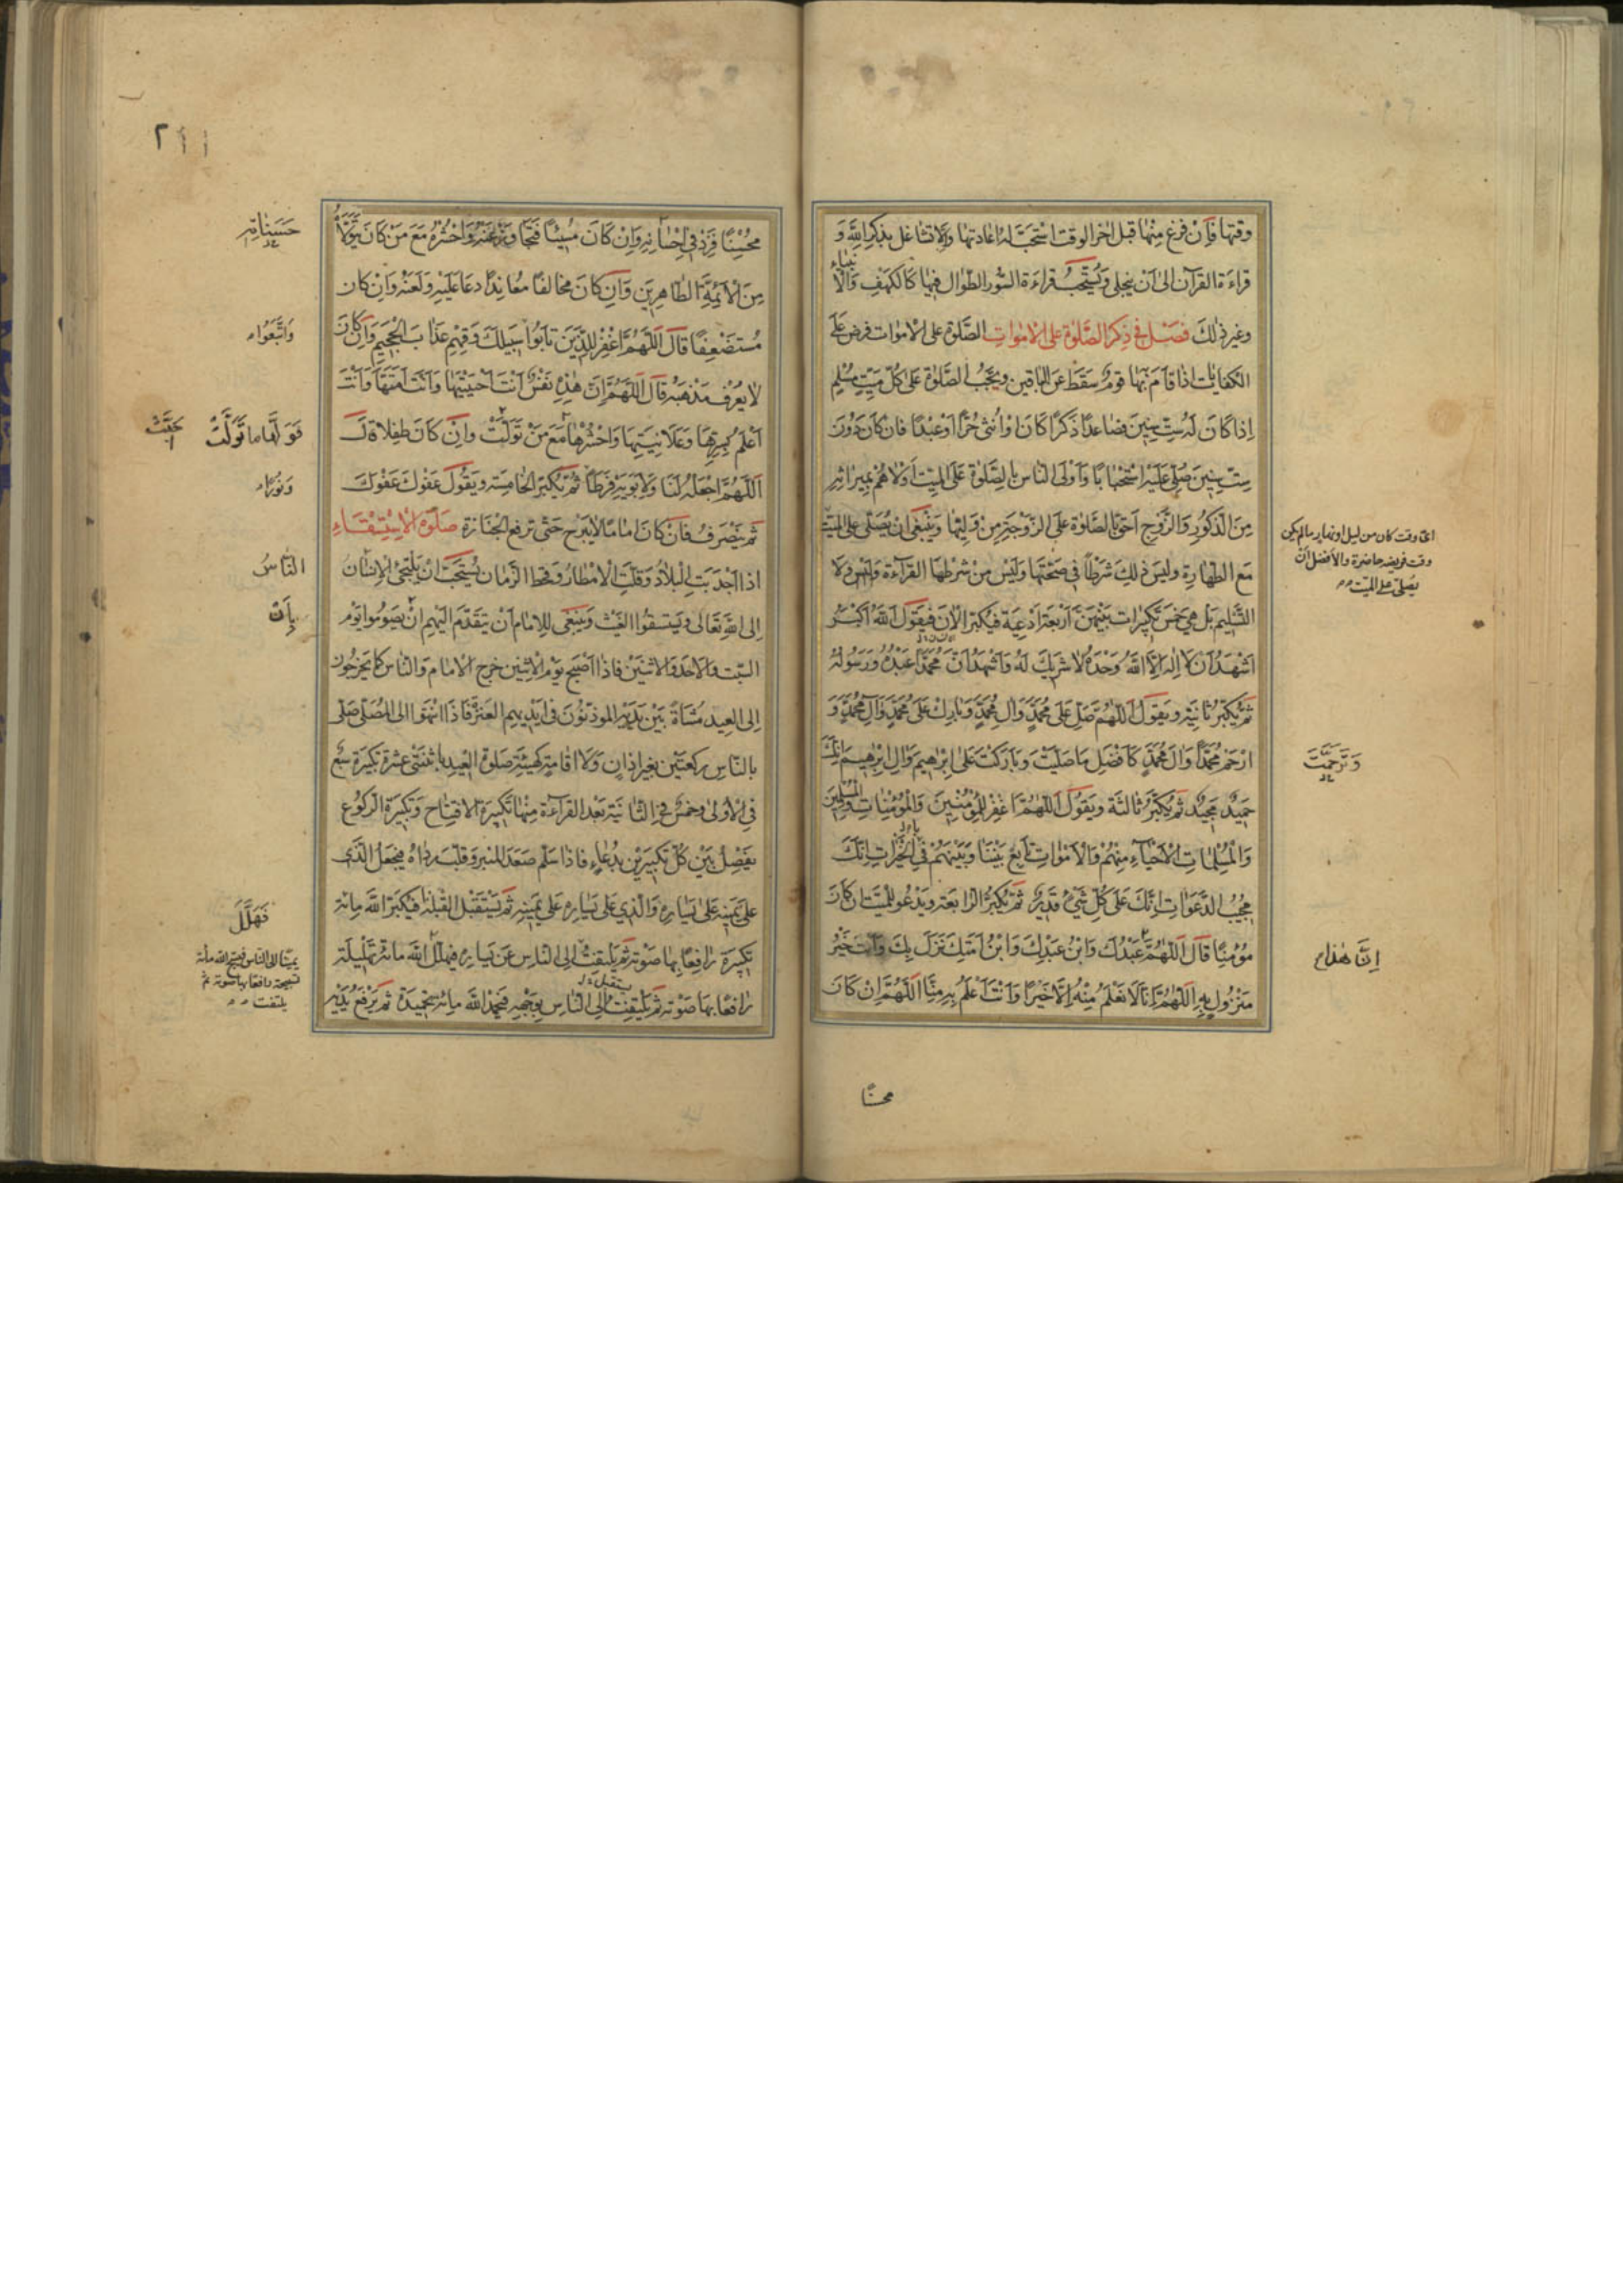 وقتها فَإِنْ فرغ مِنْها قبل اخر الوقت اسْتَحَبَّ له اعادتها وَالا تشاغل بذكر الله وَ
قراءَة القرآن الى أن ينجلى وَيُسْتَحَبُّ قراءَة السُّور الطوال فيها كَالكهفِ وَالأنبياء
وغير ذلكَ فَصْل فى ذِكر الصَّلوٰة على الاموات الصَّلوٰة على الاموات فرض عَلَى
الكفايات اذا قامَ بها قومٌ سَقَطَ عَنِ الباقين ويَجبُ الصَّلوٰة عَلى كلّ مَيّتٍ مُسْلِمٍ
اِذا كانَ لَهُ ستّ سِنِينَ فصَاعدًا ذكرًا كانَ اوْ أُنثى حُرًّا اوْ عَبْدًا فان كانَ دُونَ
ستّ سِنِينَ صُلِّىَ عَلَيْهِ اسْتحْبابًا وَأَوْلَى النّاس بالصَّلوٰة عَلَى المَيِّتِ أَوْلاهُمْ بميراثِهِ
مِنَ الذكُورِ وَالزَّوج احَقّ بالصَّلوٰة عَلَى الزَّوْجَةِ مِنْ وَلِيِّها وَيَنْبَغى ان يُصَلّى على المَيِّتِ
مَعَ الطّهارةِ وليسَ ذلِكَ شَرْطًا فى صِحَّتِها وَلَيْسَ مِنْ شرْطِها القرآءَة وَلا
التّسْلِيم بَلْ هِىَ خمس تكبيرات بَيْنَهنَّ أرْبعَة ادْعِيَة فيكبّر الاوّل فيَقُول اللهُ أكْبَرُ
أشْهَدُ أنْ لا اِلهَ اِلاَّ اللهُ وَحْدَهُ لا شريكَ لَهُ وَأشْهَدُ أنَّ مُحَمَّدًا عَبْدُهُ وَرَسُولُهُ
ثمَّ يُكَبِّرُ ثانِيَة ويَقُولُ اللّهُمَّ صَلِّ عَلى مُحَمَّدٍ وَآلِ مُحَمَّدٍ وَبارِك عَلى مُحَمَّدٍ وَآلِ مُحَمَّدٍ وَ
ارْحَمْ مُحَمَّدًا وَآلَ مُحَمَّدٍ كَأفْضَلِ ما صَلَّيْتَ وَبارَكْتَ عَلى اِبْرهيمَ وَآلِ اِبْرهيمَ اِنَّكَ
حَميدٌ مَجيدٌ ثمَّ يُكَبِّرُ ثالثَة ويَقُولُ اللّهُمَّ اغْفِرْ للمُؤْمِنينَ وَالمُؤْمِناتِ وَالمُسْلِمينَ
وَالمُسْلِماتِ الأحْياءِ مِنْهُمْ وَالأمْواتِ تابِعْ بَيْنَنا وَبَيْنَهُمْ فى الخَيْراتِ اِنَّكَ
مُجيبُ الدَّعَواتِ اِنَّكَ عَلى كُلِّ شَىْءٍ قَديرٌ ثمَّ يُكَبِّرُ الرّابعَة ويَدْعُو للميّت ان كانَ
مُؤْمِنًا قالَ اللّهُمَّ عَبْدُكَ وَابْنُ عَبْدِكَ وَابْنُ أمَتِكَ نَزَلَ بِكَ وَأنْتَ خَيْرُ
مَنْزُولٍ بِهِ اللّهُمَّ اِنّا لا نَعْلَمُ مِنْهُ اِلاَّ خَيْرًا وَأنْتَ أعْلَمُ بِهِ مِنّا اللّهُمَّ اِنْ كانَ
اىّ وقت كان من ليل او نهار ما لم يكن
وقت فريضة حاضرة والافضل ان
يصلّى على الميّت
وَتَرَحَّمْتَ
اِنَّ هذا
محسنًا
٢١١
مُحْسِنًا فزِدْ فى اِحْسانِهِ وَاِنْ كانَ مُسِيئًا فَتَجاوَزْ عَنْهُ وَاحْشُرْهُ مَعَ مَنْ كانَ يَتَوَلاَّهُ
مِنَ الأئِمَّةِ الطّاهِرينَ وَاِن كانَ مخالفًا مُعانِدًا دعا عَلَيْهِ ولَعَنَهُ وَاِنْ كان
مُسْتَضْعَفًا قالَ اللّهُمَّ اغْفِرْ لِلَّذينَ تابُوا سَبيلَكَ وَقِهِمْ عَذابَ الجَحيمِ وَاِن كانَ
لا يُعْرَف مَذْهَبُه قالَ اللّهُمَّ اِنَّ هذِهِ نَفْسٌ أنْتَ أحْيَيْتَها وَأنْتَ أمَتَّها وَأنْتَ
أعْلَمُ بِسِرِّها وَعَلانِيَتِها وَاحْشُرْها مَعَ مَنْ تَوَلَّتْ وَاِنْ كانَ طِفلاً قالَ
اللّهُمَّ اجْعَلْهُ لَنا وَلأبَوَيْهِ فَرَطًا ثمَّ يُكَبِّر الخامِسَة ويَقُولُ عَفْوكَ عَفْوَكَ
ثمّ يَنْصَرفُ فان كانَ امامًا لا يَبْرَح حَتّى ترفع الجَنازة صَلوٰة الاِسْتِسْقاءِ
اذا اَجْدَبَتِ البِلادُ وَقلّتِ الأمْطارُ وَقحط الزَّمان يُسْتَحَبّ انْ يَلْتَجِئَ الاِنسان
اِلى اللهِ تَعَالى وَيَسْتَسْقوا الغَيْث وَيَنْبَغى للاِمامِ أنْ يَتَقَدَّمَ اِلَيْهِم انْ يَصُومُوا يَوْم
السَّبت وَالأحَد وَالاثنَيْن فاذا اَصْبَح يَوْم الاثنين خرَج الامام وَالنّاس كَما يَخرُجُونَ
اِلى العِيد مُشاةً بَيْنَ يَدَيْهِ المؤذّنُونَ فى أيْدِيهِم العَنَزَة فَاذا انْتَهَوا الى المُصَلّى صَلّى
بالنّاسِ ركعَتَيْنِ بغير اذانٍ وَلا اقامَةٍ كهَيْئَةِ صَلوٰة العِيدِ باثنَتى عَشرَة تكبيرَة سَبْع
فى الأُولى وَخمسٌ فى الثّانيَةِ بَعْد القراءَة مِنْها تكبيرَة الافتِتاح وَتكبيرَة الرّكُوع
يَفْصِلُ بَيْنَ كلّ تكبيرَتَيْن بدُعاءٍ فاذا سَلّم صَعَد المِنْبر وَقَلَب رداءَهُ فيَجْعَل الّذى
عَلى يَمينِه عَلى يَسارِهِ وَالّذى على يَسارِه عَلى يَمينِهِ ثمَّ يَسْتَقبِل القِبْلة فيُكَبِّر اللّهَ مائة
تكبيرَة رافِعًا بِها صَوْته ثمّ يَلْتَفِتُ اِلى النّاسِ عَنْ يَسارِه فيُهَلّل اللهَ مائة تَهْليلَة
رافِعًا بِها صَوْته ثمَّ يَلْتَفِت الى النّاس بِوَجْهِهِ فيَحْمَد اللهَ مائة تَحْميدَة ثمَّ يَرْفَعُ يَدَيْهِ
حَسَناتِهِ
وَاتَّبَعُوا
فَوَلِّها ما تَوَلَّتْ
وَنُورًا
النّاسُ
بِأنْ
فَهَلَّلَ
يمينًا الى النّاس فيسبّح الله مائة
تسبيحة رافعًا بها صوته ثمّ
يلتفت